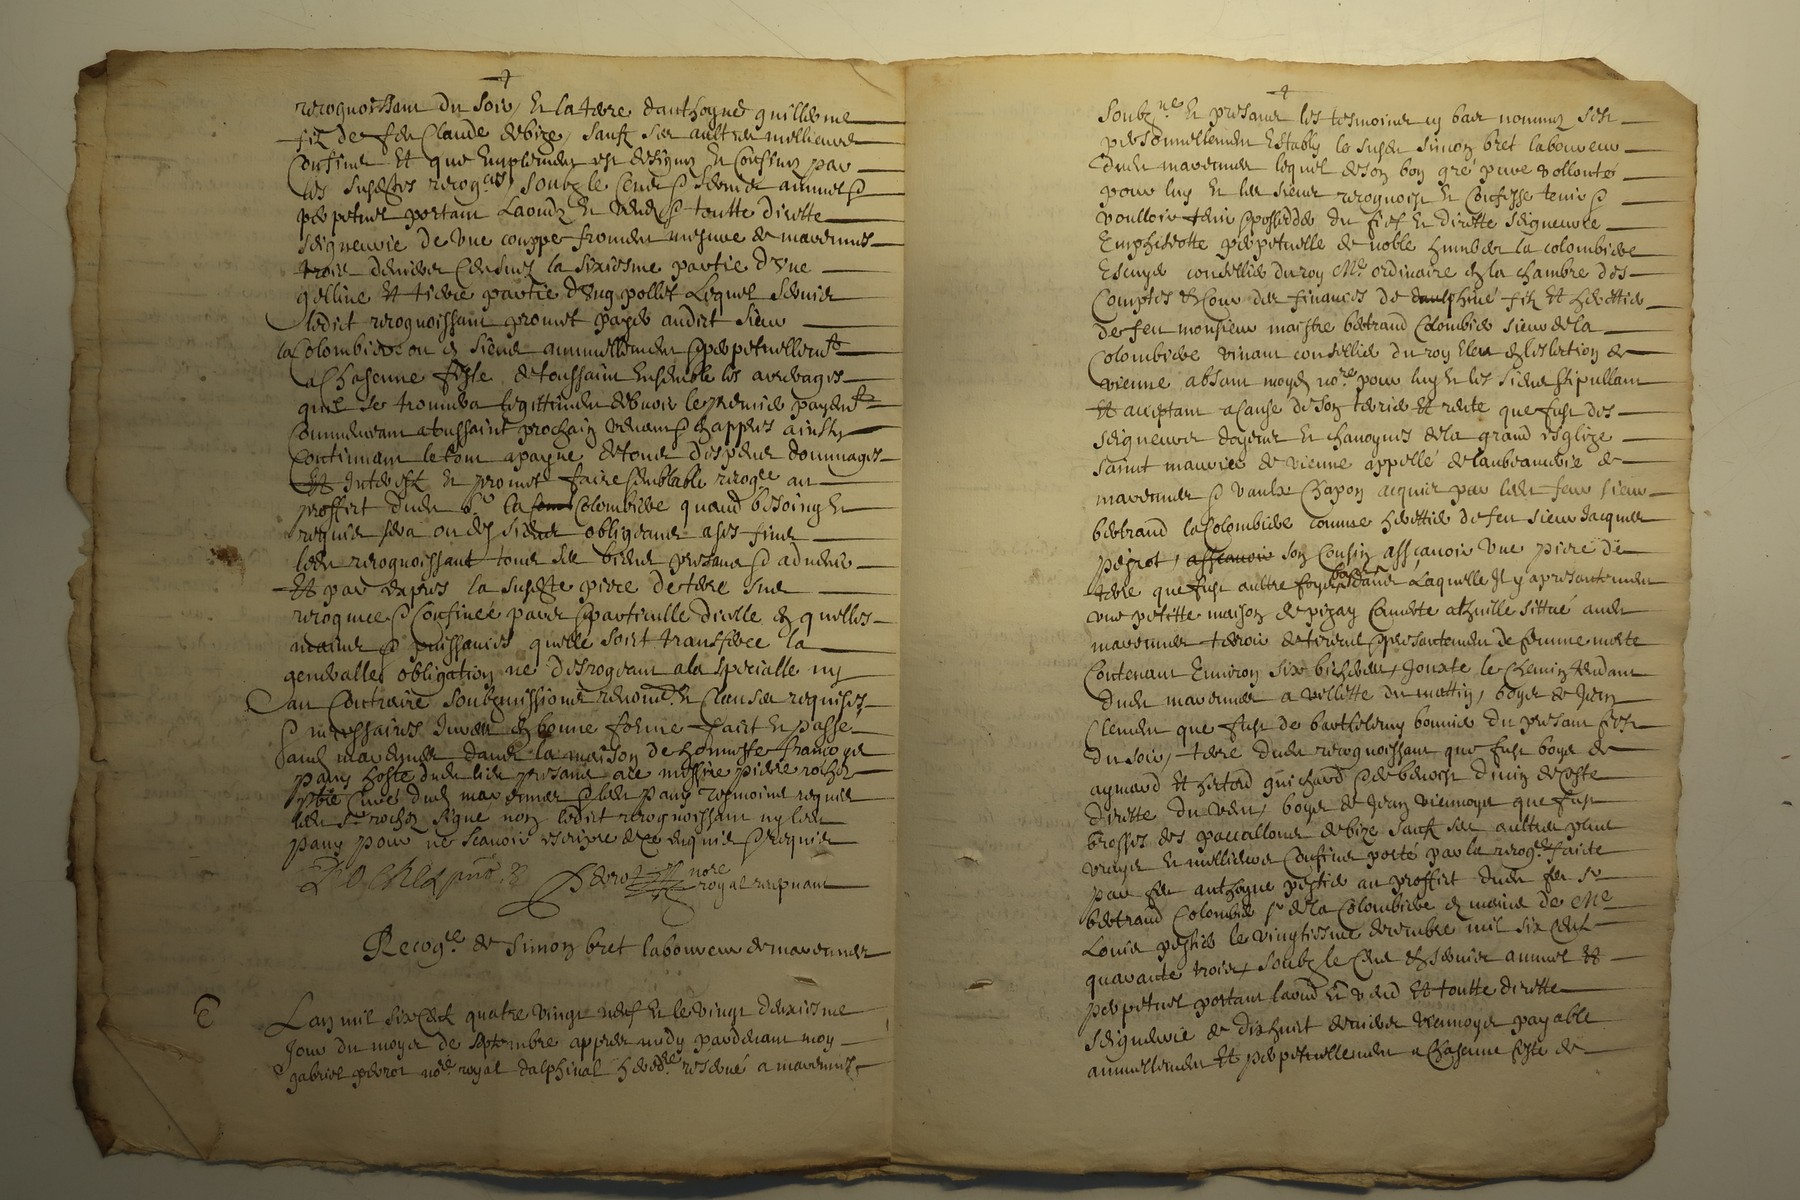 recognoissant du soir, et la terre danthoyne guilleme
filz de feu Claude de bize, sauf ses aultres meillieurs
Confins Et que Emplement est designé et Confiné par
les susdictes recog.ces soubz le Cens & servis annuel &
perpetuel portant Laoudz et vendz & toutte directe
seigneurie de Une couppe froment mesure de marennes
trois deniers Censuel la sixiesme partie d'Une
gelline Et tierce partie d'Ung pollet Lequel servis
ledict recognoissant promet payer audict sieur
la Colombiere ou es siens annuellement & perpetuellem.t
a Chascune feste de toussaint Ensemble les arrerages
quil se trouvera legittimement debvoir le premier payem.t
Commencant a toussaint prochain venant & appres ainsy
Continuant le tout a payne de tous despens dommages
Et Interest et promet faire semblable recog.ce au
proffict dudit s.r la Colombiere quand besoing et
requis sera ou des siens obligeant a ses fins
ledit recognoissant tous ses biens presans & advenir
Et par expres la susdicte piece de terre sus
recognue & Confinée par & particulle dicelle en quelles
mains & puissances quelle soict transferee la
generalle obligation ne desrogeant a la specialle ny
au Contraire soubzmissions renon.on et Clauses requises
& necessaires Jurées en bonne forme faict et passé
audit marennes dans la maison de honneste francoys
pany hoste dudit lieu presans ace messire pierre rochez
p.bre Curé dudit marennes & ledit pany tesmoins requis
ledit s.r rochez signé non ledict recognoissant ny ledit
pany pour ne scavoir escripre de ce enquis & requis
Perrot no.re
royal recepvant
Recog.ce de Simon bret laboureur de marennes
Lan mil six Cent quatre vingt neuf et le vingt deuxiesme
Jour du moys de septembre appres midy pardevant moy
gabriel perrot no.re royal dalphinal hered.re reservé a marennes
Soubz.né et presans les tesmoins cy bas nommez sest
personnellement Estably le susdit Simon bret laboureur
dudit marennes lequel de son bon gré pure vollonté
pour luy et les siens recognoist et Confesse tenir &
voulloir tenir & posseder du fief et directe seigneurie
Emphiteotte perpetuelle de noble humbert la colombiere
Escuyer conseillier du roy M.e ordinaire en la chambre des
Comptes & Cour des finances de dauphiné filz Et heritier
de feu monsieur maistre bertrand Colombier sieur de la
Colombiere vivant conseillier du roy Eleu en leslection de
vienne absant moy no.re pour luy et les siens stipullant
Et acceptant a Cause de son terrier Et rente que fust des
seigneurs doyens et chanoynes de la grand esglize
saint maurice de vienne appellé de laubeaucerie de
marennes & vaulx Chapon acquise par ledit feu sieur
bertrand la Colombiere comme heritier de feu sieur Jacques
perrot, son Cousin asscavoir Une piece de
terre que fust aultre foys boys Laquelle Il y a presantement
une petitte maison de pizay Couverte athuille sittué audit
marennes terroir de & presantement de
Contenant Environ six bicherees, Jouxte le Chemin tendant
dudit marennes a villette du mattin, boys de Jean
Clement que fust de bartholemy bonnier du presant fief
du soir, terre dudit recognoissant que fust boys de
aymard Et hector guichard & de benoist divin de ceste
directe du vent, boys de Jean viennoys que fust
brosses des paccallons de bize sauf ses aultres plus
vrays et meillieurs Confins porté par la recog.ce faicte
par feu anthoyne pestier au proffict dudit feu s.r
bertrand Colombier s.r de la Colombiere es mains de M.e
Louis pestier le vingtiesme decembre mil six Cent
quarante trois, soubz le Cens & servis annuel Et
perpetuel portant laoud Et vend Et toutte directe
seigneurie de dixhuit deniers viennoys payable
annuellement Et perpetuellement a Chascune feste de